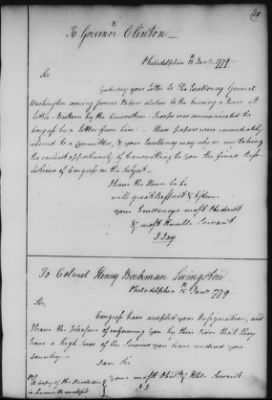 To Governor Clinton
Philadelphia 12 Jany 1779
Sir
Yesterday your Letter to His Excellency General
Washington among
Little Britain by the
Congress by a Letter from him. These papers were immediately
referred to a Committee, & your Excellency may rely on my taking
the earliest opportunity of transmitting to you the final
of Congress on the Subject.
I have the Honor to be
with great Respect & Esteem
your Excellency's most Obedient
& most Humble Servant
J. Jay
To Colonel Henry Beekman Livingston
Philadelphia 1779
Sir,
Congress have accepted your Resignation, and
I have the Pleasure of informing you by their Order that they
have a high Sense of the Services you have rendered your
Country.
I am Sir
your most Obedt & Hble Servant
J. J.
A Copy of the Resolution
is herewith enclosed